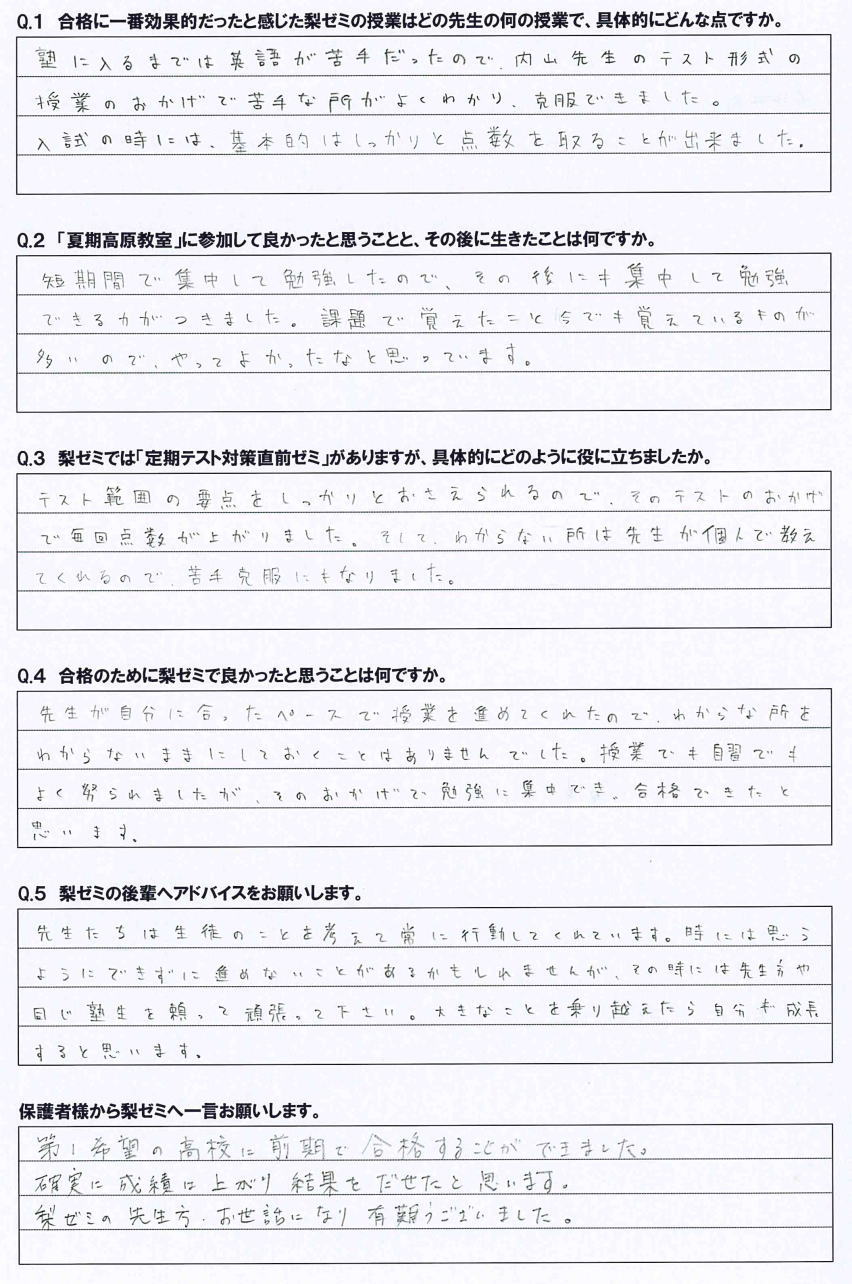 Q.1 合格に一番効果的だったと感じた梨ゼミの授業はどの先生の何の授業で、具体的にどんな点ですか。
塾に入るまでは英語が苦手だったので、内山先生のテスト形式の
授業のおかげで苦手な所がよくわかり、克服できました。
入試の時には、基本的はしっかりと点数を取ることが出来ました。
Q.2 「夏期高原教室」に参加して良かったと思うことと、その後に生きたことは何ですか。
短期間で集中して勉強したので、その後にも集中して勉強
できる力がつきました。課題で覚えたこと今でも覚えているものが
多いので、やってよかったなと思っています。
Q.3 梨ゼミでは「定期テスト対策直前ゼミ」がありますが、具体的にどのように役に立ちましたか。
テスト範囲の要点をしっかりとおさえられるので、そのテストのおかげ
で毎回点数が上がりました。そして、わからない所は先生が個人で教え
てくれるので、苦手克服にもなりました。
Q.4 合格のために梨ゼミで良かったと思うことは何ですか。
先生が自分に合ったペースで授業を進めてくれたので、わからな所を
わからないままにしておくことはありませんでした。授業でも自習でも
よく努られましたが、そのおかげで勉強に集中でき、合格できたと
思います。
Q.5 梨ゼミの後輩へアドバイスをお願いします。
先生たちは生徒のことを考えて常に行動してくれています。時には思う
ようにできずに進めないことがあるかもしれませんが、その時には先生方や
同じ塾生を頼って頑張って下さい。大きなことを乗り越えたら自分が成長
すると思います。
保護者様から梨ゼミへ一言お願いします。
第1希望の高校に前期で合格することができました。
確実に成績は上がり結果をだせたと思います。
梨ゼミの先生方、お世話になり有難うございました。